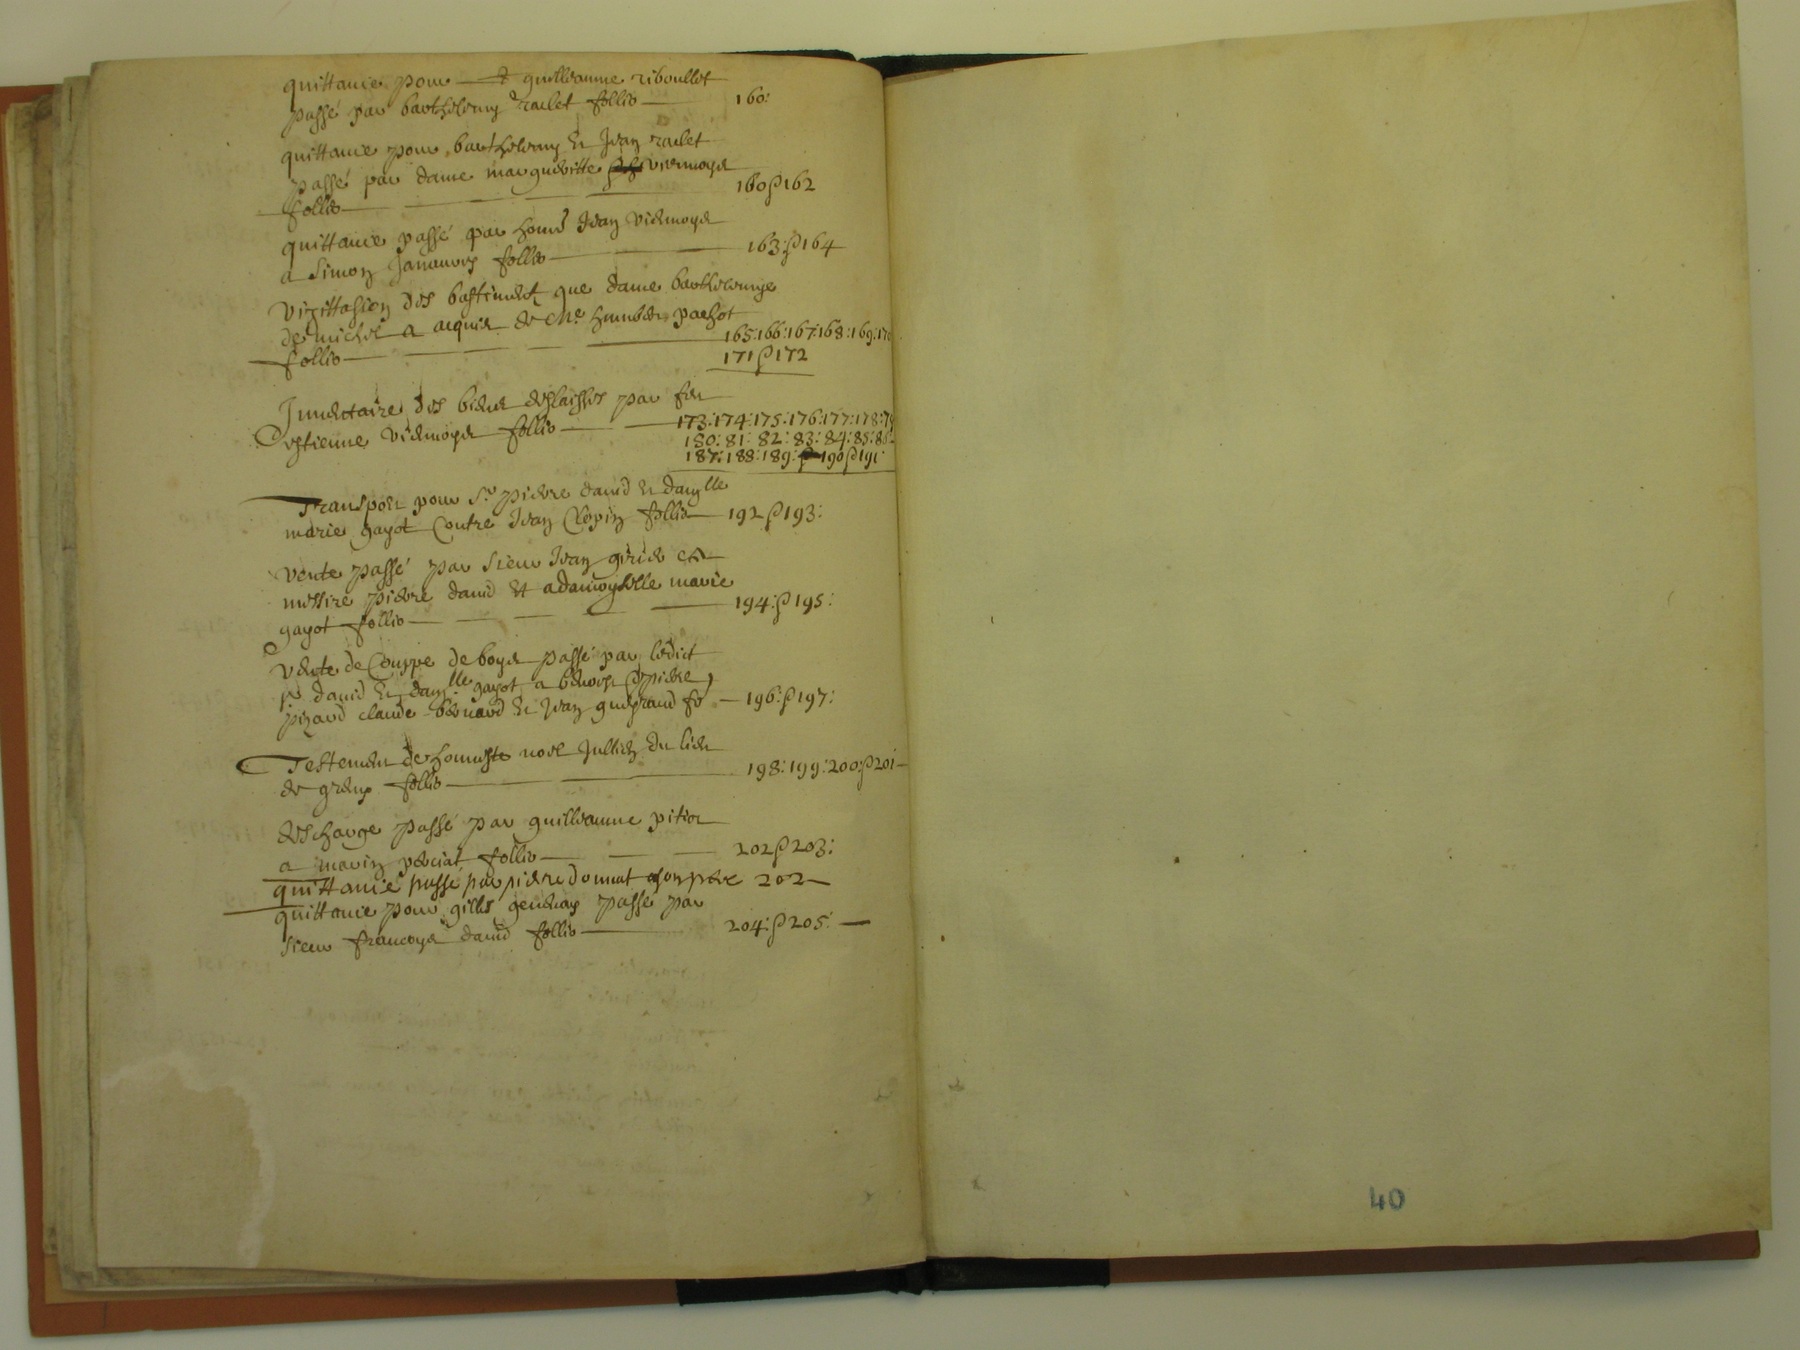 quittance pour guilleaume riboullet
passé par barthelemy raclet follio 160:
quittance pour barthelemy et Jean raclet
passé par dame margueritte viremoye
follio 160 & 162
quittance passé par hon^e Jean viremoye
a Simon Janauoy follio 163: & 164
vizittasion des bastiment que dame barthelemye
de michel a acquis de M^e humber pachot
follio 165: 166: 167: 168: 169: 170
171 & 172
Inuentaire des biens deslaisses par feu
estienne viremoye follio 173: 174: 175: 176: 177: 178: 79
180: 81: 82: 83: 84: 85: 86
187: 188: 189: 190 & 191
Transport pour S^r pierre dauid et dam^lle
marie gayot Contre Jean Crepin follio 192 & 193:
vente passé par sieur Jean
messire pierre dauid et a damoyselle marie
gayot follio 194: & 195:
vente de Couppe de boys passé par ledict
s^r dauid et dam^lle gayot a benoist & pierre
pizard claude bernard et Jean guepraud fo 196: & 197:
Testement de honneste noel Jullien du lieu
de follio 198: 199: 200: & 201
descharge passé par guilleaume pition
a marin perciat follio 202 & 203:
quittance passé par pierre donnat a son pere 202
quittance pour gilles passé par
sieur francoys dauid follio 204: & 205:
40